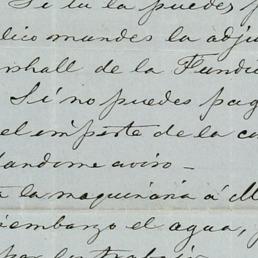 Si tu la puedes p
lico mandes la adju
rshall de la Fundi
Si no puedes pag
el importe de la co
dandome aviso _
a la maquinaria á M
embargo el agua, y
por la trabajo